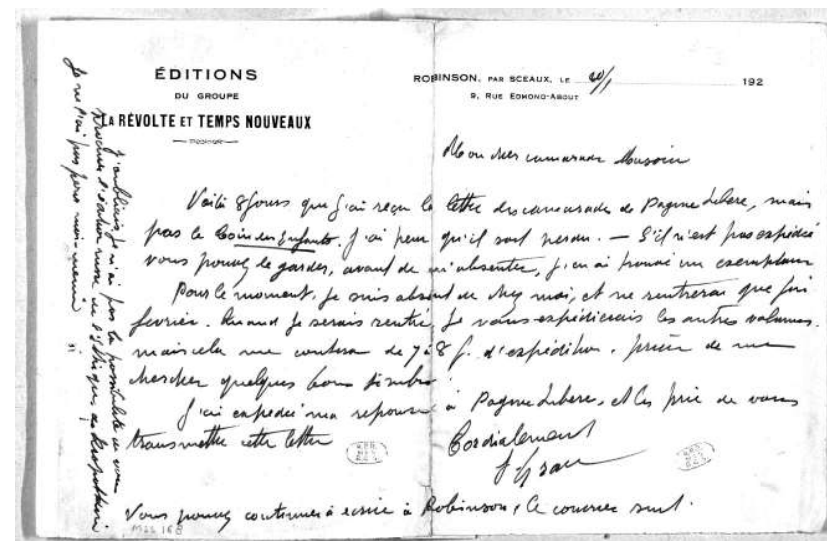 ÉDITIONS
DU GROUPE
LA RÉVOLTE ET TEMPS NOUVEAUX
ROBINSON, PAR SCEAUX, LE 20/1 192
9, RUE EDMOND-ABOUT
Mon cher camarade
Voilà 8 jours que j'ai reçu la lettre des camarades de Pagine Libere, mais
pas le Coin des Enfants. J'ai peur qu'il soit perdu. — S'il n'est pas expédié
vous pouvez le garder, avant de m'absenter, j'en ai trouvé un exemplaire
Pour le moment, je suis absent de chez moi, et ne rentrerai que fin
février. Quand je serais rentré, je vous expédierais les autres volumes.
mais cela me coutera de 7 à 8 f. d'expédition. prière de me
chercher quelques bons timbres
J'ai expédié ma reponse à Pagine Libere, et les prie de vous
transmettre cette lettre
Cordialement
J Grave
Vous pouvez continuer à ecrire à Robinson, le courrier suit.
J'oubliais, je n'ai pas la possibilité de vous
procurer l'édition russe de l'Ethique de Kropotkine
Je ne l'ai pas pour moi-même
MSS 168